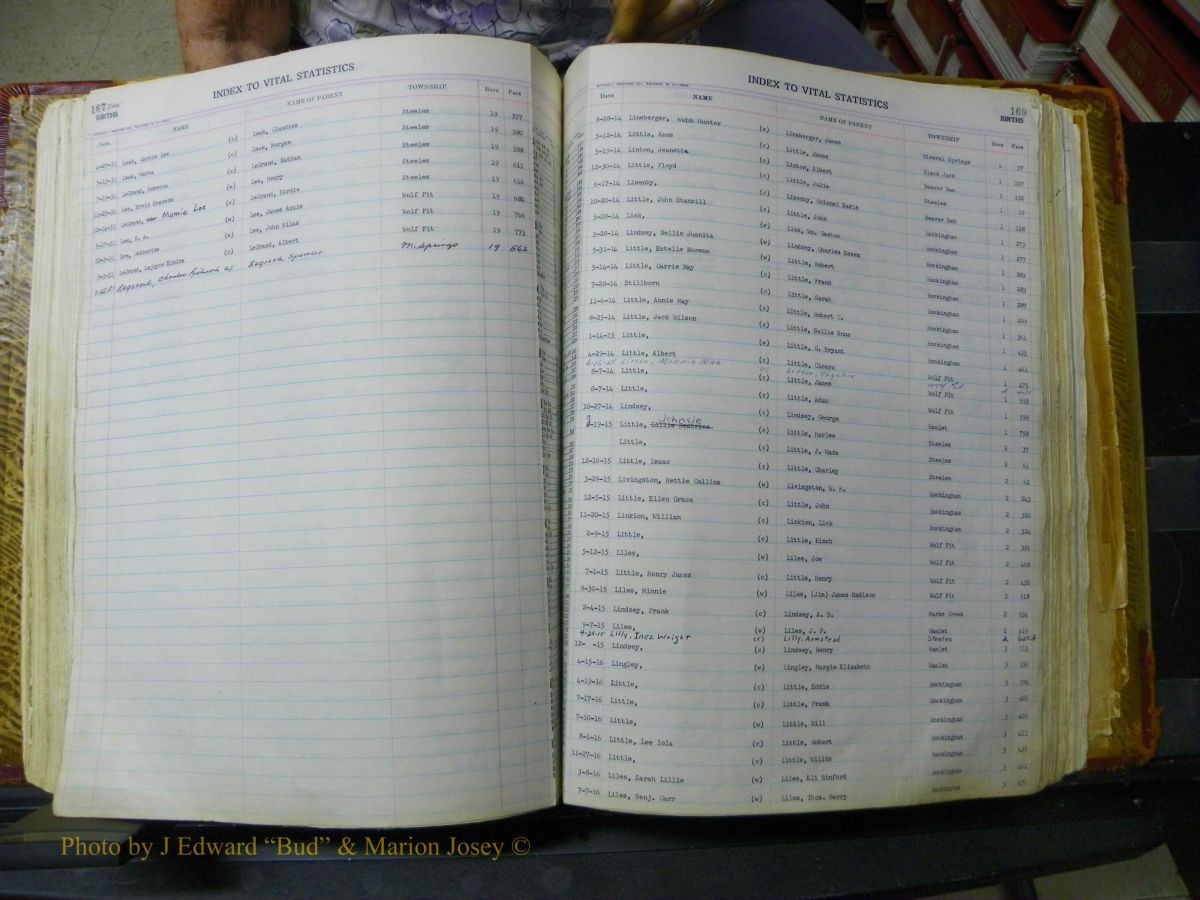 167
BIRTHS
INDEX TO VITAL STATISTICS
Date NAME NAME OF PARENT TOWNSHIP Book Page
4-29-31 Leak, Carrie Lee (c) Leak, Claudius Steeles 19 577
Leak, (c) Leak, Morgan Steeles 19 580
LeGrand, Rebecca (c) LeGrand, Nathan Steeles 19 588
Lee, (w) Lee, Henry Steeles 19 611
LeGrand, Mamie Lee (c) LeGrand, Birdie Steeles 19 616
Lee, (w) Lee, James Azzie Wolf Pit 19 680
Lee, Catherine (w) Lee, John Silas Wolf Pit 19 766
LeGrand, (c) LeGrand, Albert Wolf Pit 19 773
Legrand, Charlie Richard Legrand, Spencer M. Springs 19 562
INDEX TO VITAL STATISTICS
169
BIRTHS
Date NAME NAME OF PARENT TOWNSHIP Book Page
8-28-14 Lineberger, Webb Hunter (w) Lineberger, James Mineral Springs 1 57
5-12-14 Little, Anos (c) Little, James Black Jack 1 107
5-19-14 Linton, Jeanette (c) Linton, Albert Beaver Dam 1 152
12-30-14 Little, Floyd (c) Little, Julia Steeles 1 19
6-17-14 Lisenby, (c) Lisenby, Colonel Earle Beaver Dam 1 158
10-20-14 Little, John Stansill (c) Little, John Rockingham 1 273
3-28-14 Lisk, (w) Lisk, Wm. Gaston Rockingham 1 277
3-28-14 Lindsey, Nellie Juanita (w) Lindsey, Charles Essex Rockingham 1 281
5-31-14 Little, Estelle Burene (w) Little, Robert Rockingham 1 283
5-14-14 Little, Carrie May (c) Little, Frank Rockingham 1 287
7-28-14 Stillborn (c) Little, Sarah Rockingham 1 299
11-6-14 Little, Annie May (c) Little, Robert C. Rockingham 1 361
8-25-14 Little, Jack Wilson (c) Little, Sallie Anne Rockingham 1 433
1-14-15 Little, (w) Little, G. Bryant Rockingham 1 461
4-29-14 Little, Albert (c) Little, Cicero Wolf Pit 1 475
6-16-15 Little, Minnie Mae Little, Phyllis Wolf Pit 2
8-7-14 Little, (c) Little, James Wolf Pit 1 593
8-7-14 Little, (c) Little, Adam Wolf Pit 1 599
10-27-14 Lindsey, (c) Lindsey, George Hamlet 1 758
2-19-15 Little, Lillie Beatrice Johnsie (c) Little, Harles Steeles 2 37
Little, (c) Little, J. Wade Steeles 2 61
12-16-15 Little, Isaac (c) Little, Charley Steeles 2 62
3-29-15 Livingston, Hettie Collins (w) Livingston, W. R. Rockingham 2 243
12-5-15 Little, Ellen Grace (c) Little, John Rockingham 2 320
11-20-15 Linkion, William (c) Linkion, Lick Rockingham 2 324
2-9-15 Little, (c) Little, Kinch Wolf Pit 2 381
5-12-15 Liles, (w) Liles, Joe Wolf Pit 2 408
7-1-15 Little, Henry James (c) Little, Henry Wolf Pit 2 432
9-30-15 Liles, Minnie (w) Liles, (Jim) James Madison Wolf Pit 2 518
2-4-15 Lindsey, Frank (c) Lindsey, A. B. Marks Creek 2 534
9-7-15 Liles, (w) Liles, J. P. Hamlet 2 619
4-24-15 Lilly, Inez Wright (c) Lilly, Armstead Steeles 2
12- -15 Lindsey, (c) Lindsey, Henry Hamlet 3 115
4-15-16 Lingley, (w) Lingley, Margie Elizabeth Hamlet 3 150
4-19-16 Little, (c) Little, Eddie Rockingham 3 376
7-17-16 Little, (c) Little, Frank Rockingham 3 401
7-10-16 Little, (w) Little, Will Rockingham 3 409
8-1-16 Little, Lee Iola (c) Little, Robert Rockingham 3 411
11-27-16 Little, (c) Little, Willie Rockingham 3 435
3-8-16 Liles, Sarah Lillie (w) Liles, Eli Binford Rockingham 3 461
7-7-16 Liles, Benj. Carr (w) Liles, Thos. Berry Rockingham 3 472
Photo by J Edward "Bud" & Marion Josey ©